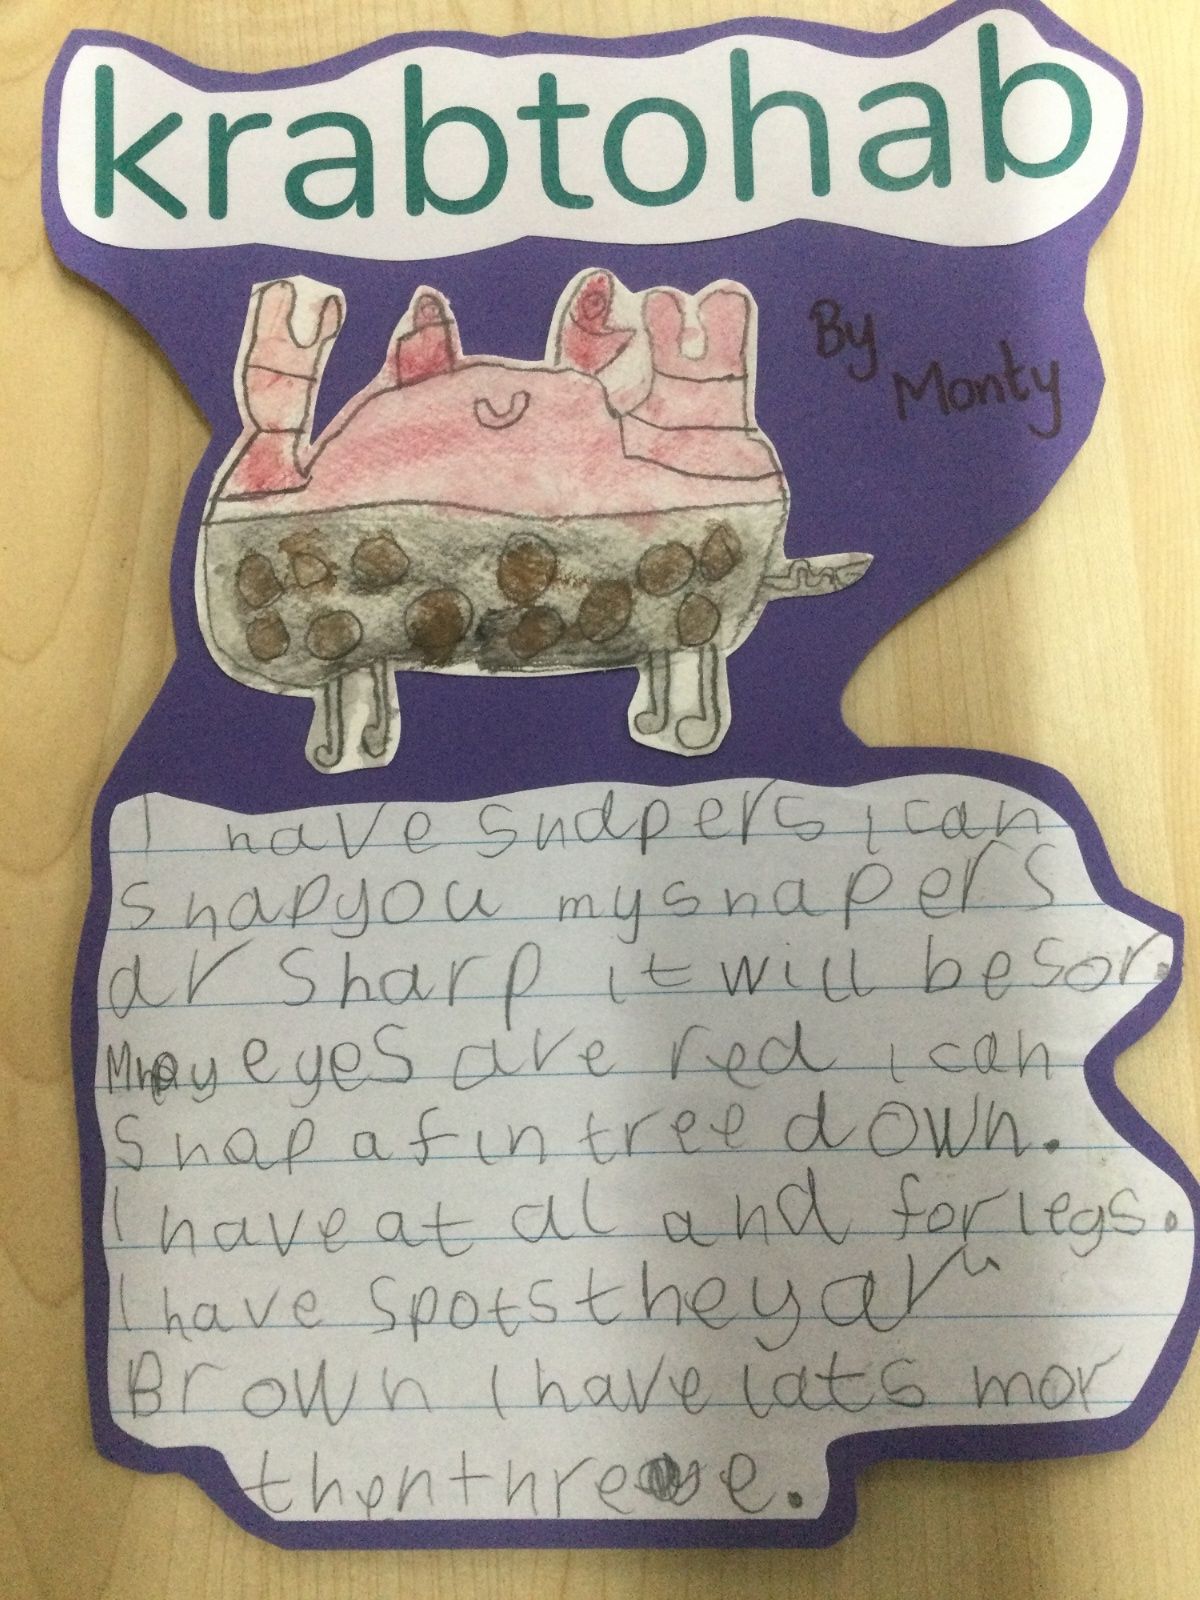 krabtohab
By
Monty
I have snapers i can
snap you my snapers
ar sharp it will be sor.
My eyes are red i can
snap a fin tree down.
I have a t al and for legs.
I have spots they ar
Brown I have lats mor
then three.